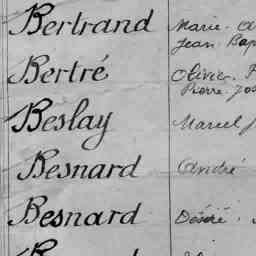 Bertrand Marie
Jean
Bertré Olivier
Pierre
Beslay Marcel
Besnard André
Besnard Désiré